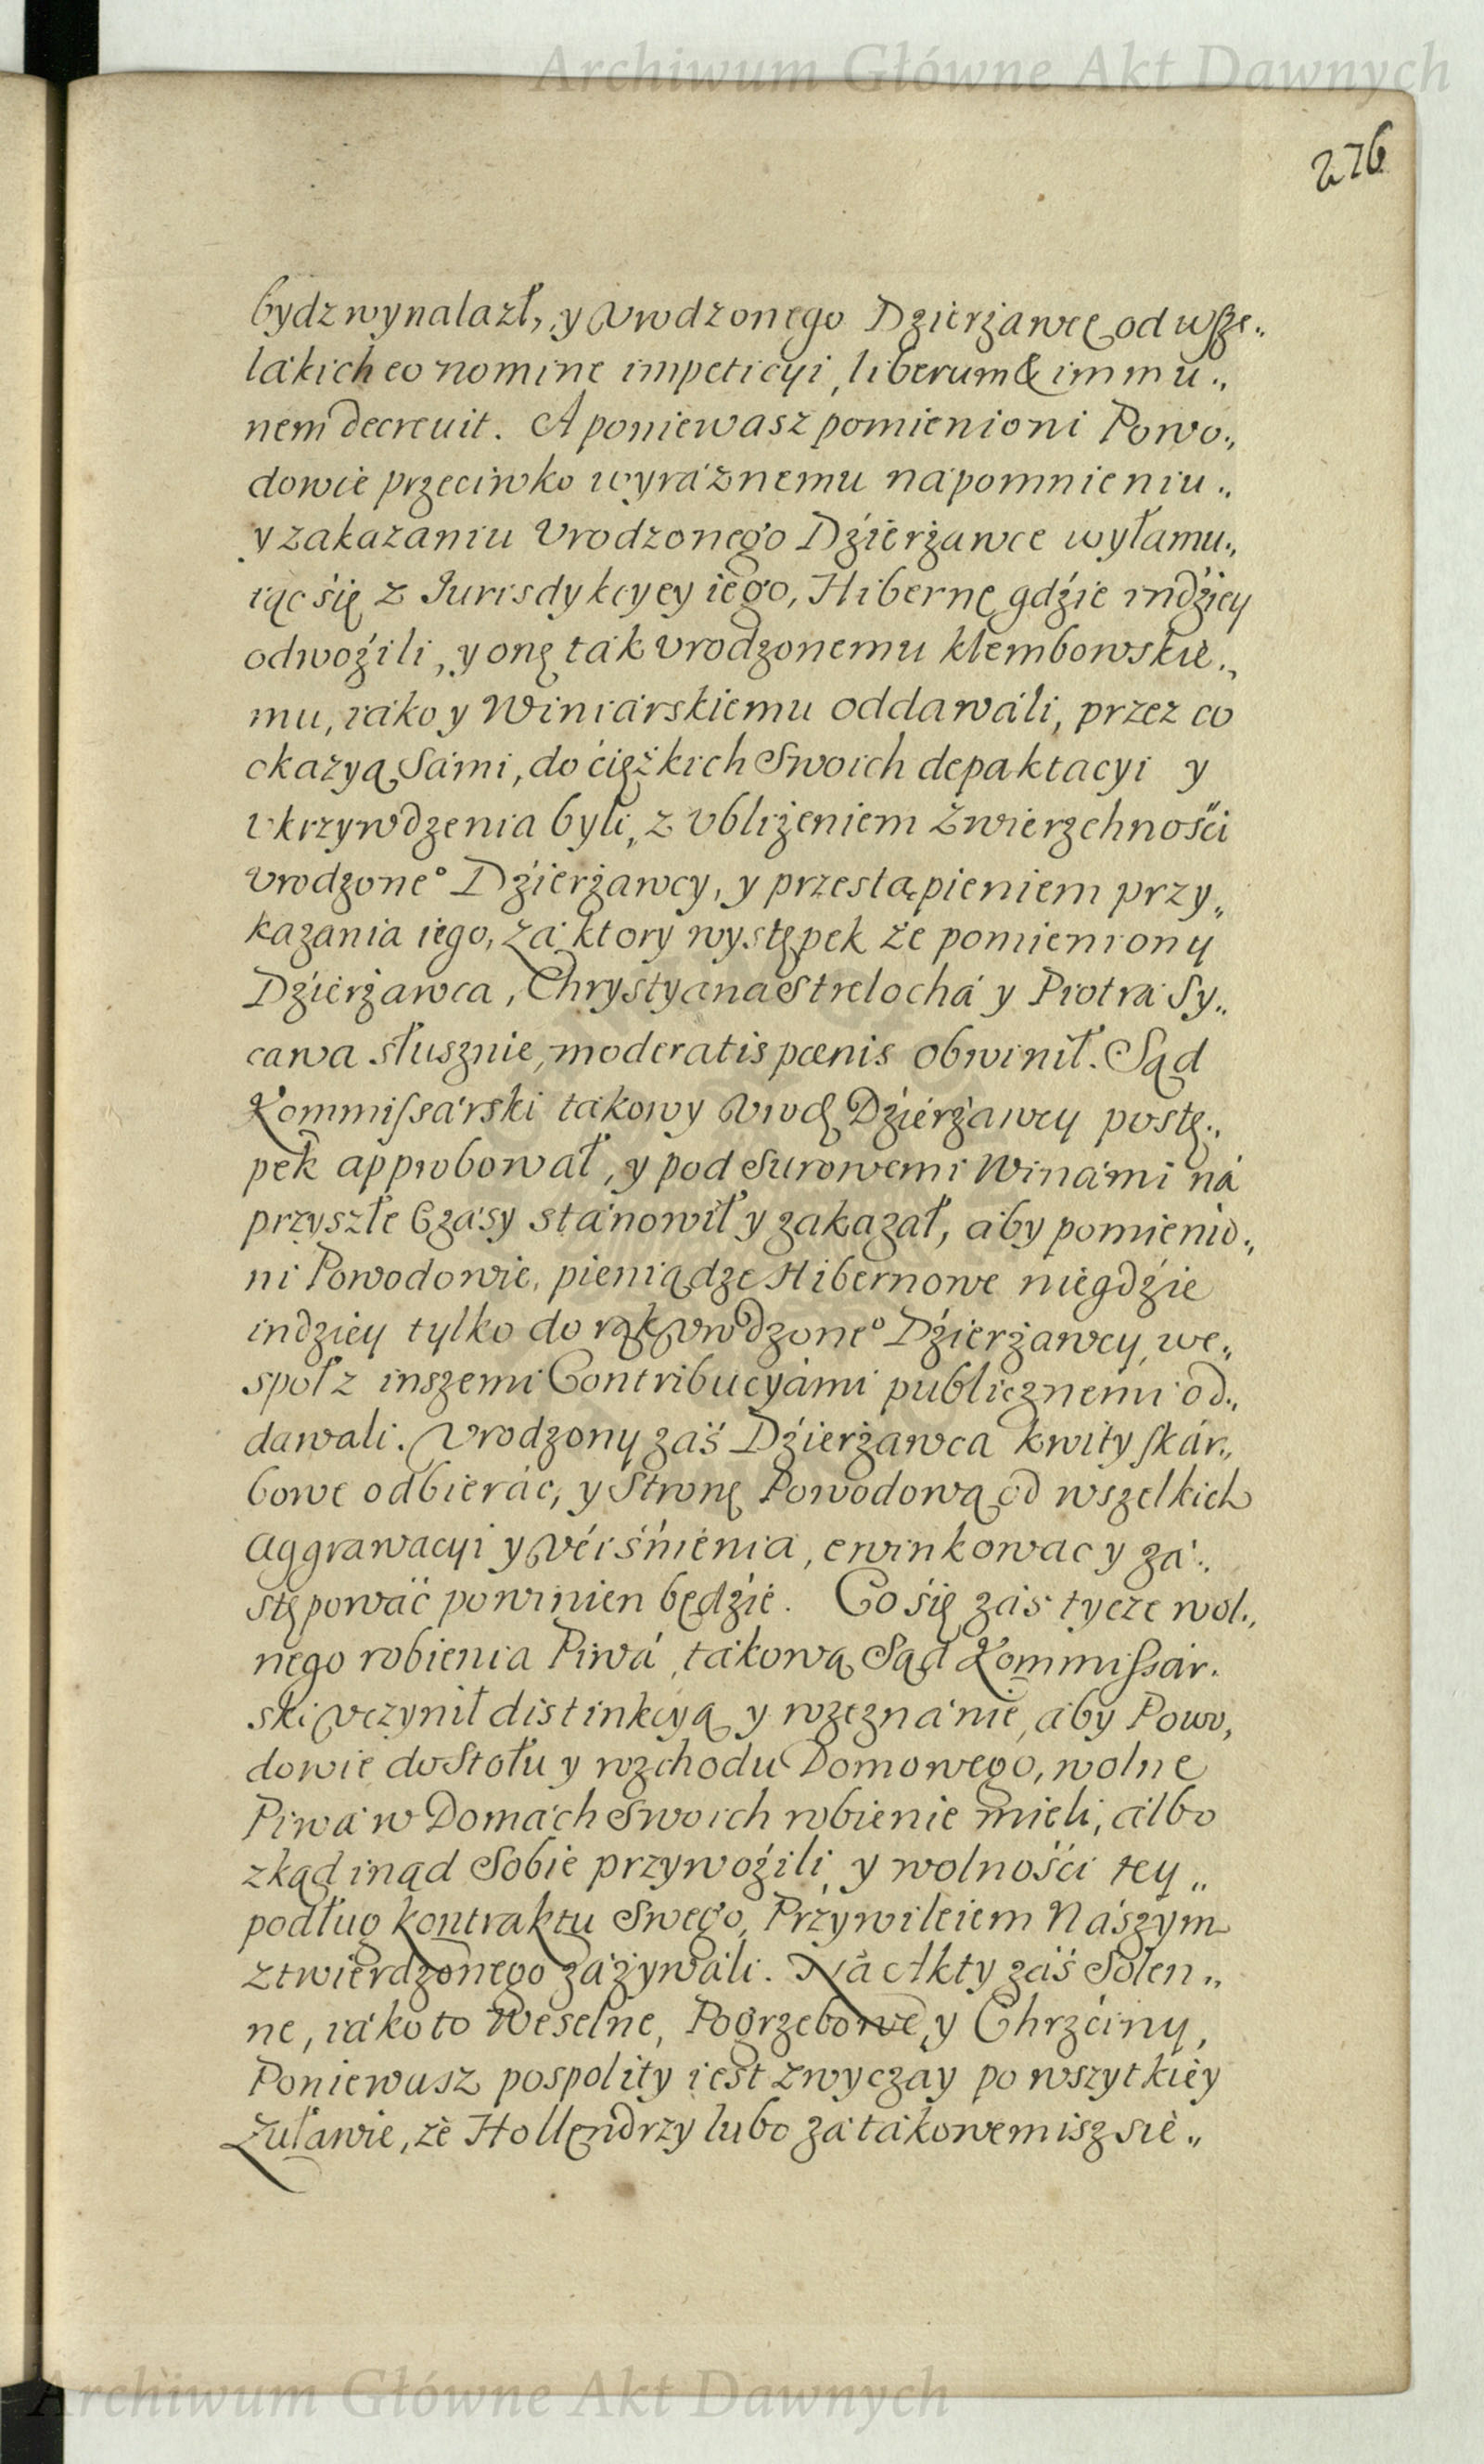 Archiwum Główne Akt Dawnych
276
bydz wynalazł, y Vrodzonego Dzierżawcę od wsze„
lákich eo nomine impeticyi, liberum & immu„
nem decreuit. A poniewasz pomienioni Powo„
dowie przeciwko wyráznemu nápomnieniu„
y zakazaniu Vrodzonego Dźierżawce wyłamu„
iąc śię z Jurisdykcyey iego, Hibernę gdźie indźiey
odwoźili, y onę ták Vrodzonemu Klembowskie„
mu, iáko y Winiárskiemu oddawáli, przez co
okazyą Sámi, do ćiężkich Swoich depaktacyi y
Vkrzywdzenia byli, z Vbliżeniem Zwierzchnośći
Vrodzone° Dźierżawcy, y przestąpieniem przy„
kazania iego, zá ktory występek że pomieniony
Dźierżawca, Chrystyana Strelochá y Piotrá Sy„
cawa słusznie, moderatis pœnis obwinił. Sąd
Kommissárski tákowy Vrodz Dźierżawcy postę„
pek approbował, y pod Surowemi Winámi ná
przyszłe Czásy stánowił y zakazał, áby pomienio„
ni Powodowie, pieniądze Hibernowe niegdźie
indziey tylko do rąk Vrodzone° Dźierżawcy, we„
społ z inszemi Contribucyámi publicznemi od„
dawali. Vrodzony záś Dźierżawca kwity skár„
bowe odbieráć, y Stronę Powodową od wszelkich
Aggrawacyi y Vćiśńienia, ewinkowac y zá„
stępowáć powinien będźie. Co śię záś tycze wol„
nego robienia Piwá, tákową Sąd Kommissár„
ski Vczynił distinkcyą y rozeznánie, áby Powo„
dowie do Stołu y rozchodu Domowego, wolne
Piwá w Domách Swoich robienie mieli, álbo
zkąd inąd Sobie przywoźili, y wolnośći tey„
podług kontraktu Swego, Przywileiem Nászym
ztwierdzonego záżywáli. Ná Akty záś Solen„
ne, iáko to Weselne, Pogrzebowe, y Chrzćiny,
Poniewusz pospolity iest zwyczay po wszytkiey
Żuławie, że Hollendrzy lubo zá tákowemisz sie„
Archiwum Główne Akt Dawnych